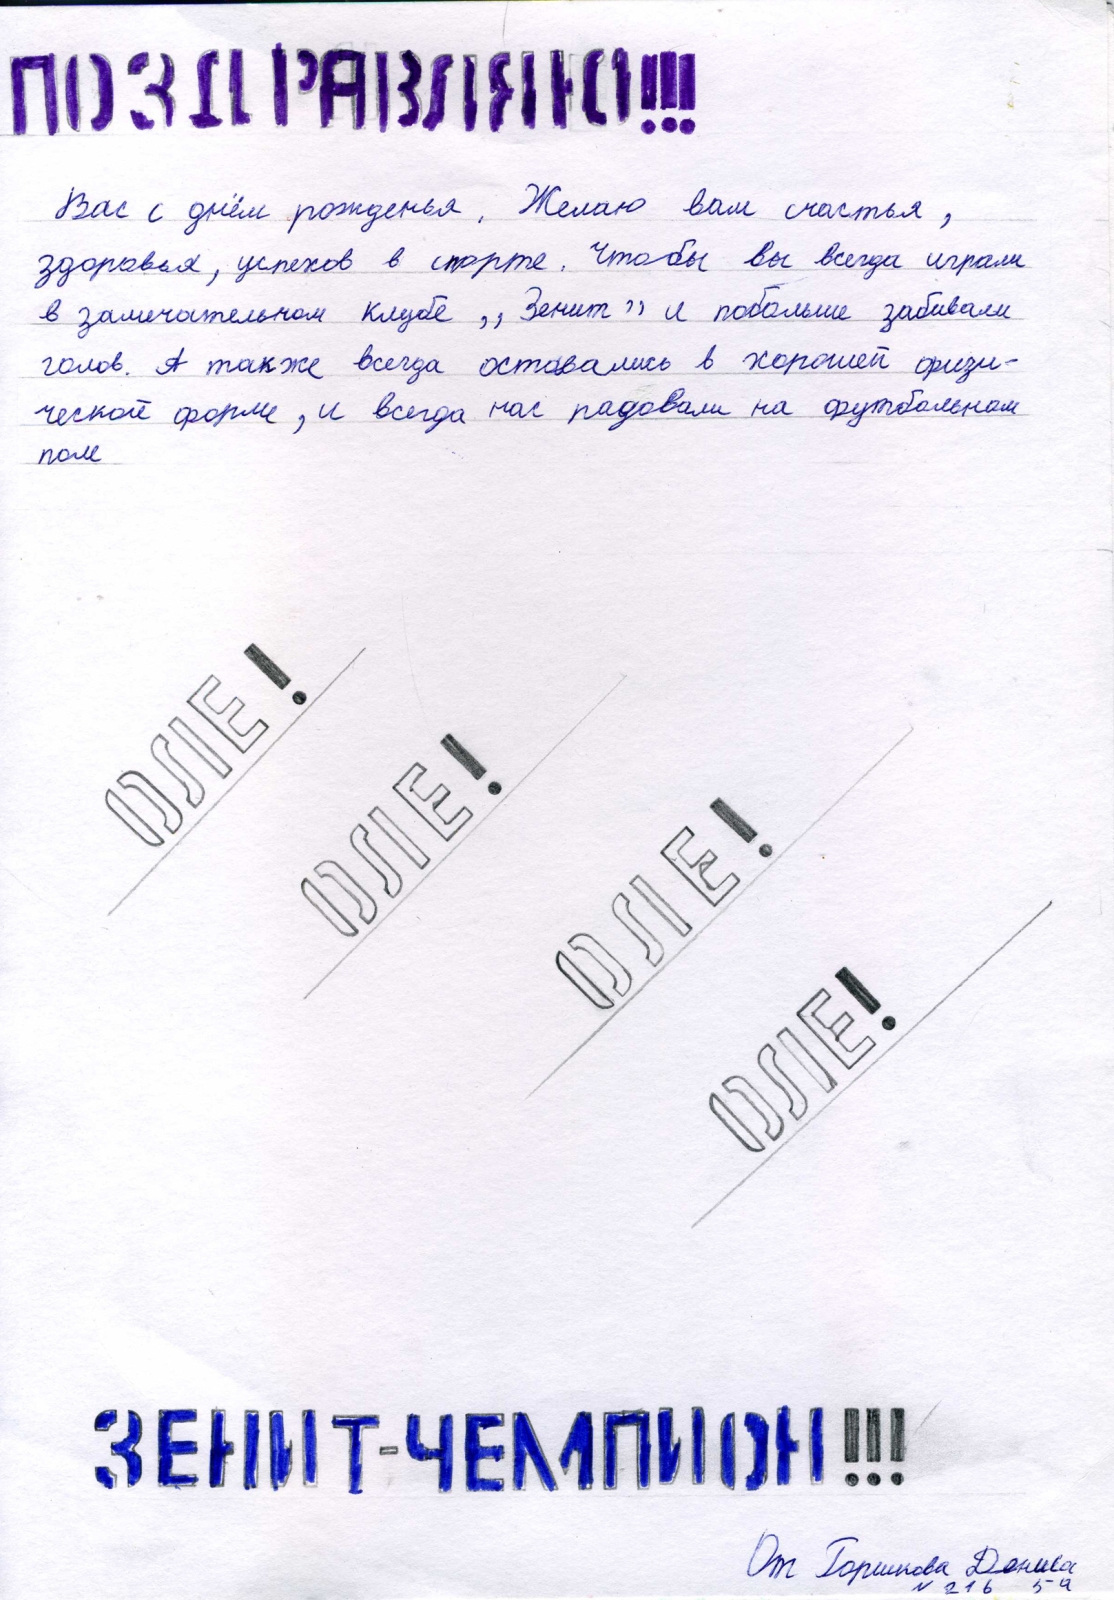 ПОЗДРАВЛЯЮ!!!
Вас с днём рожденья. Желаю вам счастья,
здоровья, успехов в спорте. Чтобы вы всегда играли
в замечательном клубе ,,Зенит" и побольше забивали
голов. А также всегда оставались в хорошей физи-
ческой форме, и всегда нас радовали на футбольном
поле
ОЛЕ!
ОЛЕ!
ОЛЕ!
ОЛЕ!
ЗЕНИТ-ЧЕМПИОН!!!
От Горшкова Дениса
N 216 5a